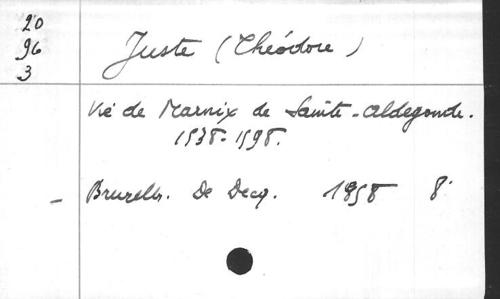 20
96
3
Juste (Théodore)
Vie de Marnix de Sainte-Aldegonde.
1538-1598.
- Bruxelles. De Decq. 1858 8°